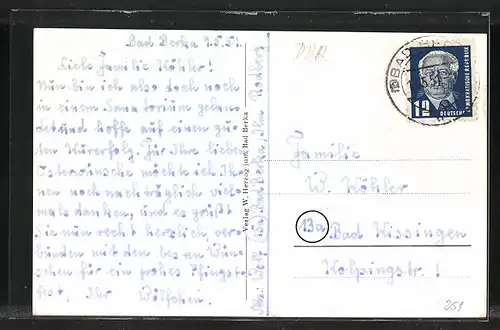 Bad Berka 9.5.51.
Liebe Familie Köhler!
Nun bin ich also doch noch
in einem Sanatorium gelan-
det und hoffe auf einen gu-
ten Kurerfolg. Für Ihre lieben
Osterwünsche möchte ich Ih-
nen noch nachträglich viel-
mals danken, und es grüßt
Sie nun recht herzlich, ver-
bunden mit den besten Wün-
schen für ein frohes Pfingst-
fest, Ihr
Verlag W. Herzog jun., Bad Berka
Bad Berka, Thür.
DDR
BAD
12
DEUTSCHE DEMOKRATISCHE REPUBLIK
Familie
W. Köhler
13a Bad Kissingen
Kolpingstr. !
251